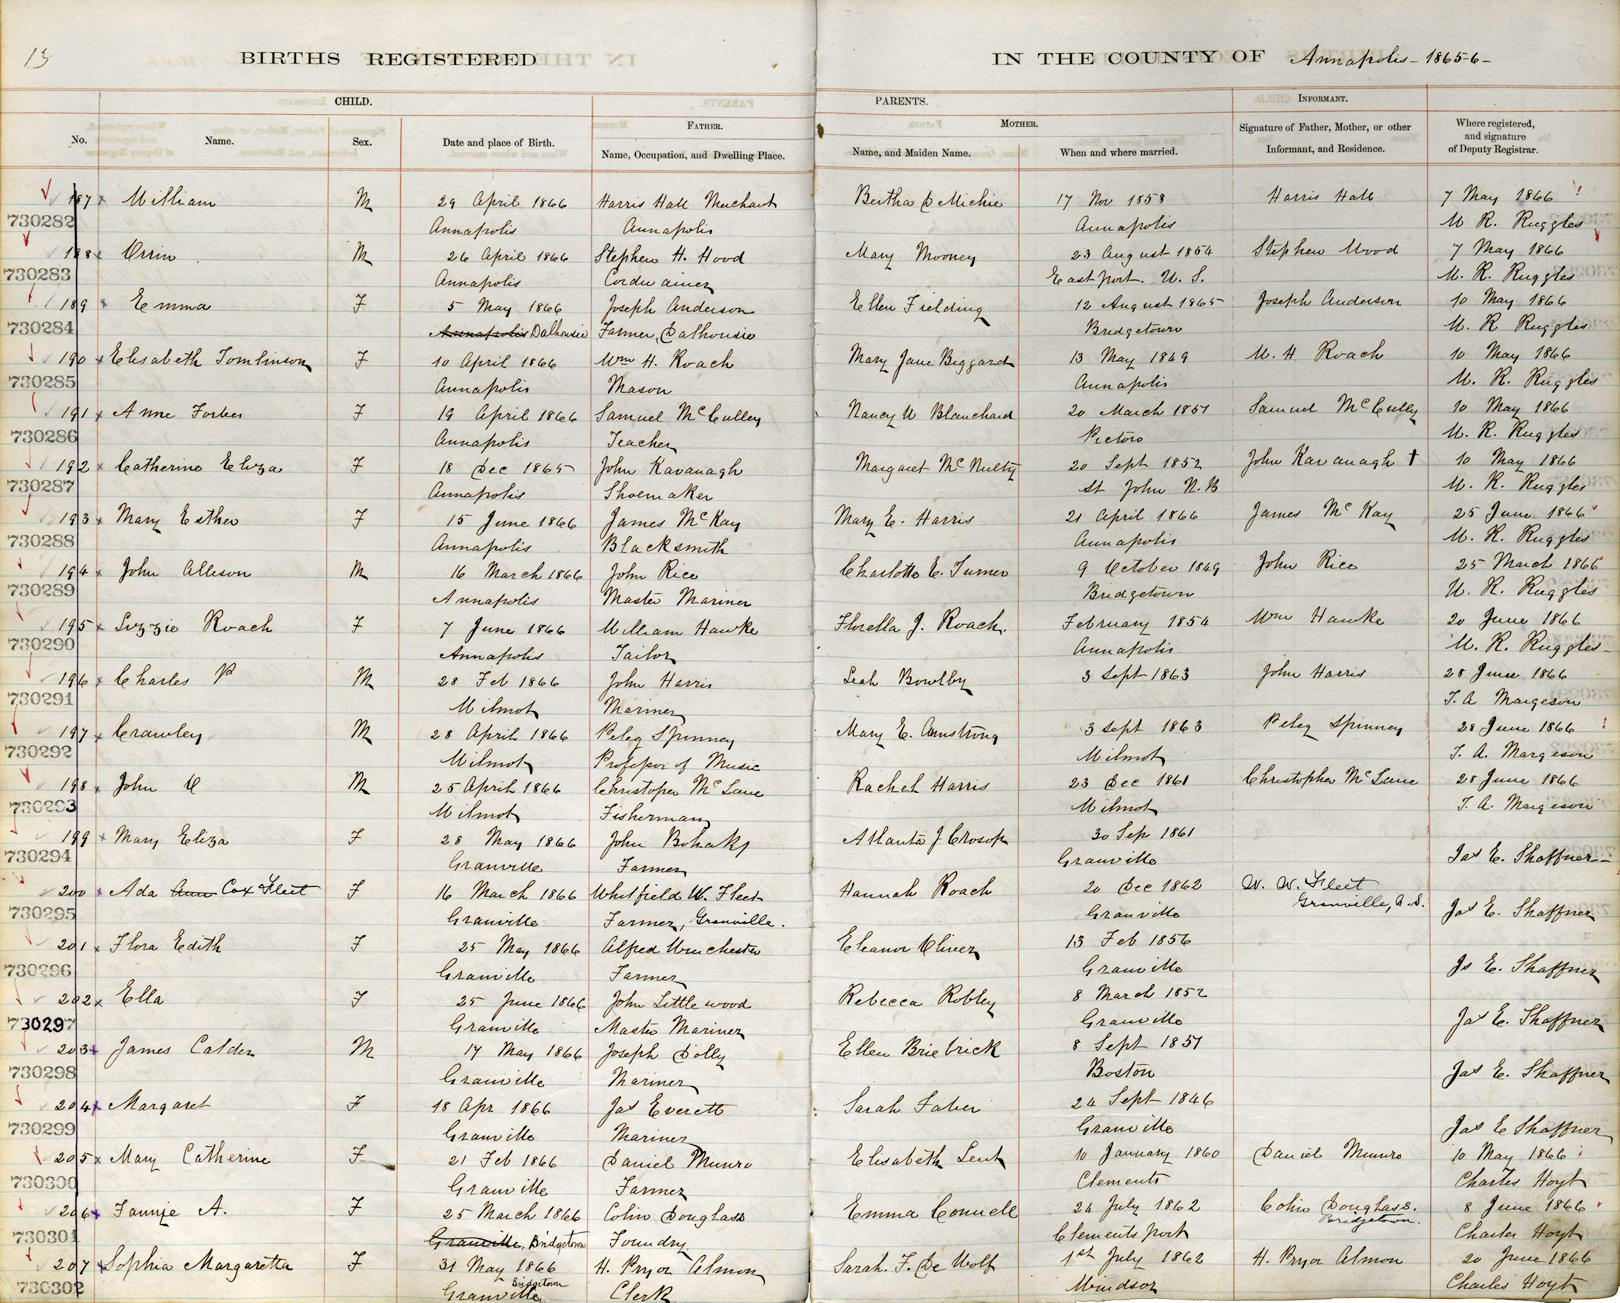 13
BIRTHS REGISTERED IN THE COUNTY OF Annapolis - 1865-6 -
CHILD. PARENTS. INFORMANT.
FATHER. MOTHER.
No. Name. Sex. Date and place of Birth. Name, Occupation, and Dwelling Place. Name, and Maiden Name. When and where married. Signature of Father, Mother, or other Informant, and Residence. Where registered, and signature of Deputy Registrar.
187 William M 29 April 1866 Harris Hall Merchant Bertha DeMichie 17 Nov 1858 Harris Hall 7 May 1866
730282 Annapolis Annapolis Annapolis W. R. Ruggles
188 Orrin M 26 April 1866 Stephen H. Hood Mary Mooney 23 August 1854 Stephen Wood 7 May 1866
730283 Annapolis Cordwainer East port. U. S. W. R. Ruggles
189 Emma F 5 May 1866 Joseph Anderson Ellen Fielding 12 August 1865 Joseph Anderson 10 May 1866
730284 Annapolis Dalhousie Farmer, Dalhousie Bridgetown W. R Ruggles
190 Elisabeth Tomlinson F 10 April 1866 Wm H. Roach Mary Jane Biggard 13 May 1849 W. H Roach 10 May 1866
730285 Annapolis Mason Annapolis W. R. Ruggles
191 Anne Forbes F 19 April 1866 Samuel McCulley Nancy W Blanchard 20 March 1857 Samuel McCully 10 May 1866
730286 Annapolis Teacher Pictou W. R. Ruggles
192 Catherine Eliza F 18 Dec 1865 John Kavanagh Margaret McNulty 20 Sept 1852 John Kavanagh † 10 May 1866
730287 Annapolis Shoemaker St John N. B W. R. Ruggles
193 Mary Esther F 15 June 1866 James McKay Mary E. Harris 21 April 1866 James McKay 25 June 1866
730288 Annapolis Blacksmith Annapolis W. R. Ruggles
194 John Allison M 16 March 1866 John Rice Charlotte E. Turner 9 October 1849 John Rice 25 March 1866
730289 Annapolis Master Mariner Bridgetown W. R. Ruggles
195 Lizzie Roach F 7 June 1866 William Hawke Florella J. Roach. February 1854 Wm Hawke 20 June 1866
730290 Annapolis Tailor Annapolis W. R. Ruggles
196 Charles P M 28 Feb 1866 John Harris Leah Bowlby 3 Sept 1863 John Harris 28 June 1866
730291 Wilmot Mariner T. A Margeson
197 Crawley M 28 April 1866 Peleg Spinney Mary E. Armstrong 3 Sept 1863 Peleg Spinney 28 June 1866
730292 Wilmot Professor of Music Wilmot T. A. Margeson
198 John C M 25 April 1866 Christopher McLane Rachel Harris 23 Dec 1861 Christopher McLane 28 June 1866
730293 Wilmot Fisherman Wilmot T. A. Margeson
199 Mary Eliza F 28 May 1866 John Bohaky Atlanta J Crosop 30 Sep 1861
730294 Granville Farmer Granville Jas E. Shaffner
200 Ada Ann Cox Fleet F 16 March 1866 Whitfield W. Fleet Hannah Roach 20 Dec 1862 W. W. Fleet
730295 Granville Farmer, Granville. Granville Granville, N.S. Jas E. Shaffner
201 Flora Edith F 25 May 1866 Alfred Winchester Eleanor Oliver 13 Feb 1856
730296 Granville Farmer Granville Js E. Shaffner
202 Ella F 25 June 1866 John Littlewood Rebecca Robley 8 March 1852
730297 Granville Master Mariner Granville Jas E. Shaffner
203 James Calder M 17 May 1866 Joseph Dolly Ellen Briebrick 8 Sept 1857
730298 Granville Mariner Boston Jas E. Shaffner
204 Margaret F 18 Apr 1866 Jas Everett Sarah Faber 24 Sept 1846
730299 Granville Mariner Granville Jas E Shaffner
205 Mary Catherine F 21 Feb 1866 Daniel Munro Elisabeth Lent 10 January 1860 Daniel Munro 10 May 1866
730300 Granville Farmer Clements Charles Hoyt
206 Fannie A. F 25 March 1866 Colin Douglass Emma Connell 24 July 1862 Colin Douglass. 8 June 1866
730301 Granville, Bridgetown Foundry Clementsport Bridgetown. Charles Hoyt
207 Sophia Margaretta F 31 May 1866 H. Pryor Almon Sarah. F. De Wolf 1st July 1862 H. Pryor Almon 20 June 1866
730302 Granville Bridgetown Clerk Windsor Charles Hoyt